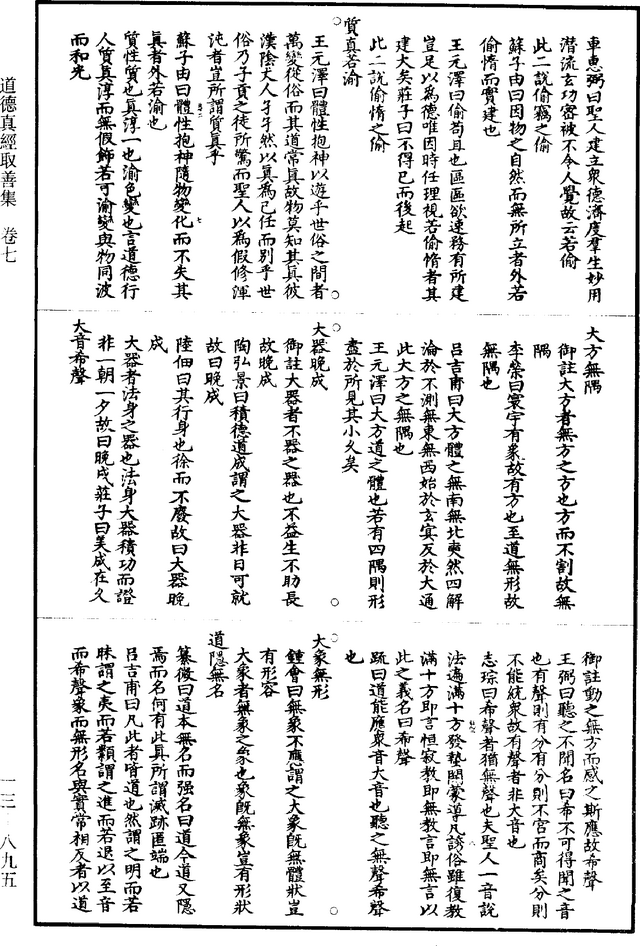 道德真經取善集　卷七
一三－八九五
車惠弼曰聖人建立衆德濟度羣生妙用
潛流玄功密被不令人覺故云若偷
此二説偷竊之偷
蘇子由曰因物之自然而無所立者外若
偷惰而實建也
王元澤曰偷苟且也區區欲速務有所建
豈足以爲德唯因時任理視若偷惰者其
建大矣莊子曰不得已而後起
此二説偷惰之偷
質真若渝
王元澤曰體性抱神以遊乎世俗之間者
萬變從俗而其道常真故物莫知其真彼
漢陰丈人㐳㐳然以真爲己任而別乎世
俗乃子貢之徒所驚而聖人以爲假修渾
沌者豈所謂質真乎
蘇子由曰體性抱神隨物變化而不失其
真者外若渝也
質性質也真淳一也渝色變也言道德行
人質真淳而無假飾若可渝變與物同波
而和光
大方無隅
御註大方者無方之方也方而不割故無
隅
李榮曰寰宇有象故有方也至道無形故
無隅也
呂吉甫曰大方體之無南無北奭然四解
淪於不測無東無西始於玄冥反於大通
此大方之無隅也
王元澤曰大方道之體也若有四隅則形
盡於所見其小久矣
大器晚成
御註大器者不器之器也不益生不助長
故晚成
陶弘景曰積德道成謂之大器非日可就
故曰晚成
陸佃曰其行身也徐而不廢故曰大器晚
成
大器者法身之器也法身大器積功而證
非一朝一夕故曰晚成莊子曰美成在久
大音希聲
御註動之無方而感之斯應故希聲
王弼曰聽之不聞名曰希不可得聞之音
也有聲則有分有分則不宮而商矣分則
不能統衆故有聲者非大音也
志琮曰希聲者猶無聲也夫聖人一音說
法遍滿十方發蟄開蒙導凡誘俗雖復教
滿十方即言恒寂教即無教言即無言以
此之義名曰希聲
疏曰道能應衆音大音也聽之無聲希聲
也
大象無形
鍾會曰無象不應謂之大象既無體狀豈
有形容
大象者無象之象也象既無象豈有形狀
道隱無名
纂微曰道本無名而强名曰道今道又隱
焉而名何有此真所謂滅跡匿端也
呂吉甫曰凡此者皆道也然謂之明而若
昧謂之夷而若纇謂之進而若退以至音
而希聲象而無形名與實常相反者以道